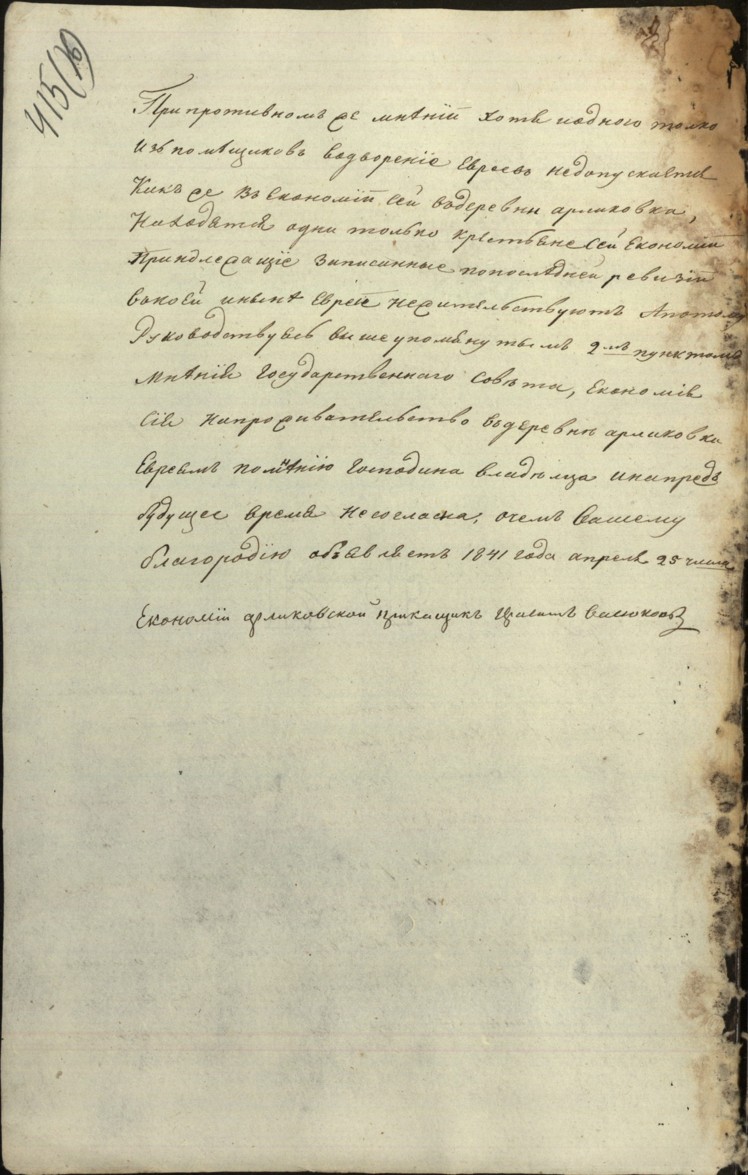 415(16)
При противномъ же мнѣнiи хотя и одного только
изъ помѣщиковъ водворенiе Евреевъ недопускается
Какъ же въ Економiи сей въ деревни арликовка,
Находятся одни только крестьяне сей Економiи
Принадлежащiе записанные по последней ревизiи
въ коей и нынѣ Евреи нежительствуютъ А потому
Руководствуясь вышеупомянутымъ 2мъ пунктомъ
мнѣнiя Государственнаго Совѣта, Економiя
сiя на проживательство въ деревнѣ арликовки
Евреямъ по мнѣнiю Господина владельца и напредъ
будущее время несогласна, о чемъ Вашему
благородiю объявляетъ 1841 года апреля 25 числа
Економiи арликовской прикащикъ